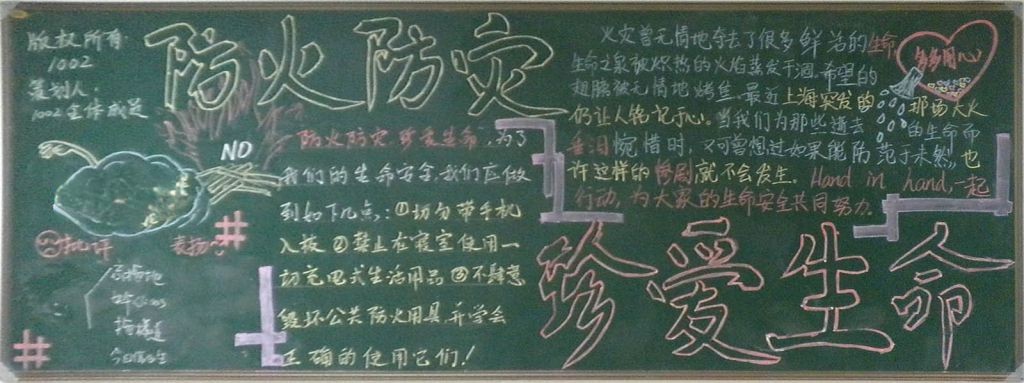 版权所有
1002
策划人:
1002全体成员
防火防灾
NO
批评
表扬
防火防灾 珍爱生命,为了
我们的生命安全,我们应做
到如下几点:①切勿带手机
入校 ②禁止在寝室使用一
切充电式生活用品 ③不肆意
毁坏公共防火用具,并学会
正确的使用它们!
火灾曾无情地夺去了很多鲜活的生命
生命之泉被炽热的火焰蒸发干涸,希望的
翅膀被无情地烤焦。最近上海突发的那场大火
仍让人铭记于心。当我们为那些逝去的生命而
垂泪惋惜时,又可曾想过如果能防范于未然,也
许这样的惨剧就不会发生。Hand in hand,一起
行动,为大家的生命安全共同努力。
多多用心
珍爱生命